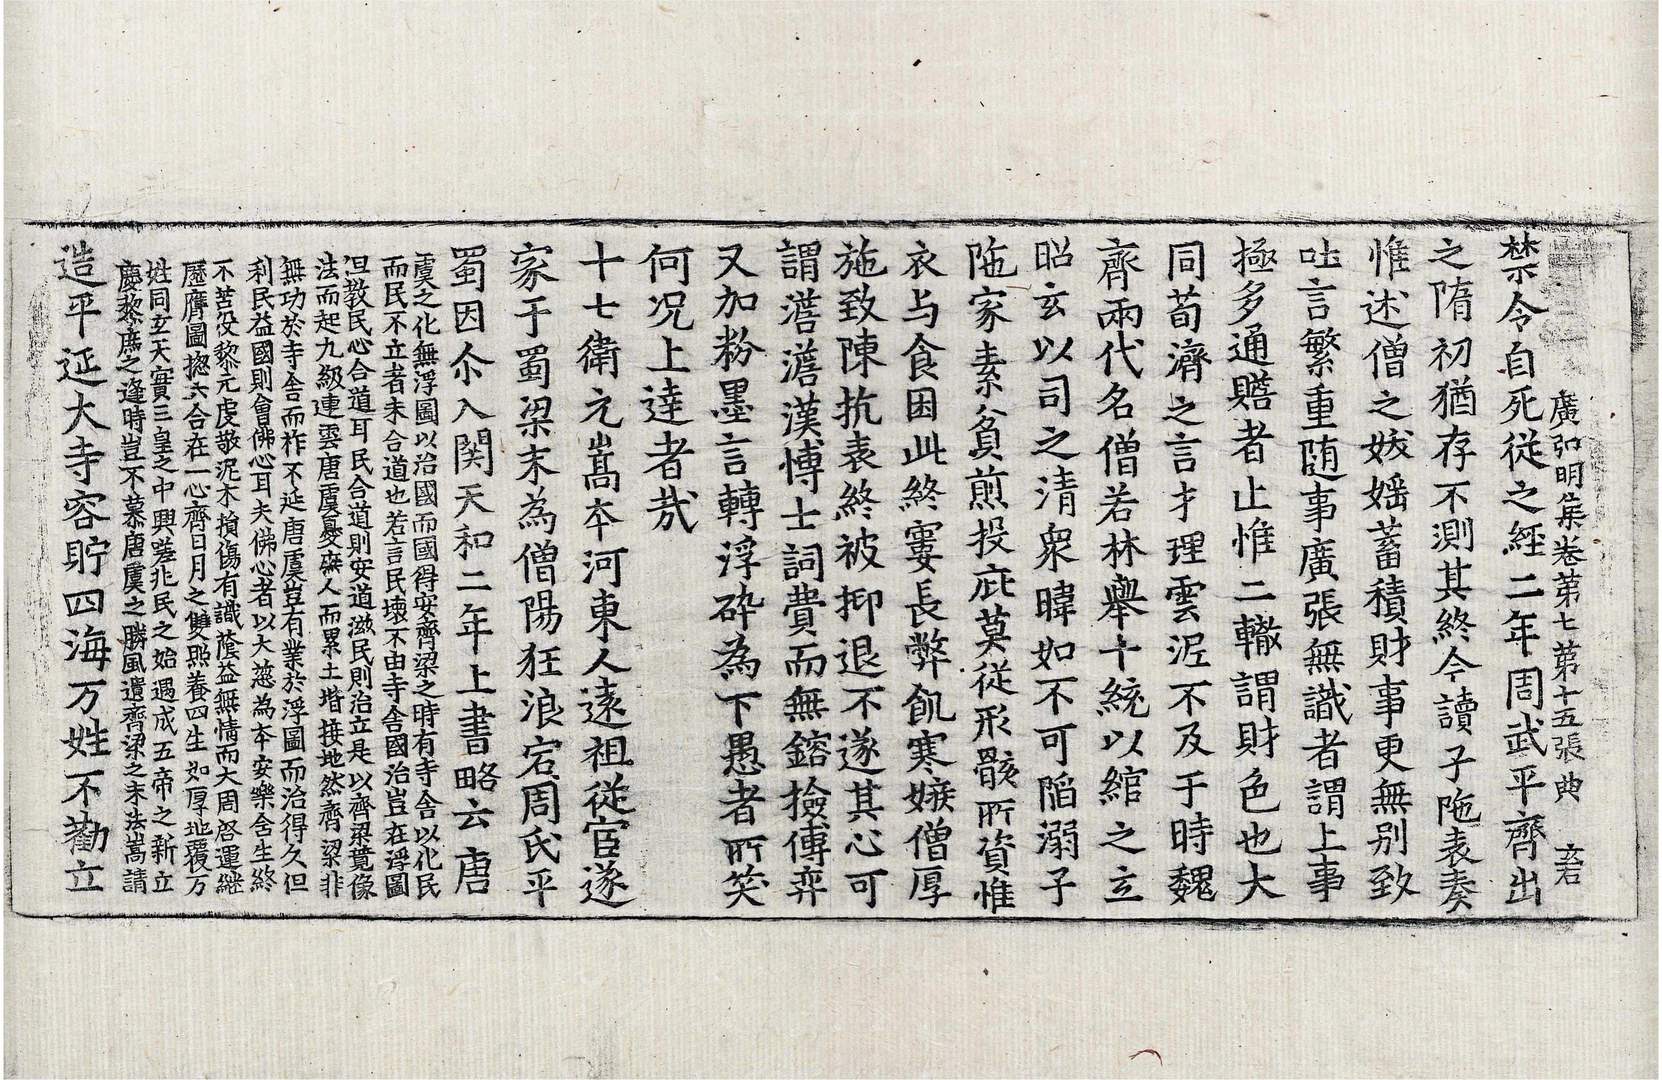 廣弘明集卷第七 第十五張 典 㐫
禁令自死從之經二年周武平齊出
之隋初猶存不測其終今讀子陁表奏
惟述僧之妖婬蓄積財事更無別致
吐言繁重随事廣張無識者謂上事
極多通贍者止惟二轍謂財色也大
同荀濟之言才理雲泥不及于時魏
齊兩代名僧若林舉十統以綰之立
昭玄以司之清衆暐如不可陷溺子
陁家素貧煎投庇莫從形骸所資惟
衣与食困此終寠長弊飢寒嫉僧厚
施致陳抗表終被抑退不遂其心可
謂澹澹漢博士詞費而無鎔撿傳弈
又加粉墨言轉浮碎為下愚者所笑
何况上達者㦲
十七衛元嵩本河東人遠祖從官遂
家于蜀梁末為僧陽狂浪宕周氏平
蜀因尒入関天和二年上書略云唐
虞之化無浮圖以治國而國得安齊梁之時有寺舍以化民
而民不立者未合道也若言民壊不由寺舍國治豈在浮圖
但教民心合道耳民合道則安道滋民則治立是以齊梁竟像
法而起九級連雲唐虞憂㾕人而累土堦接地然齊梁非
無功於寺舍而祚不延唐虞豈有業於浮圖而治得久但
利民益國則會佛心耳夫佛心者以大慈為本安樂含生終
不苦役黎元虔敬泥木損傷有識蔭益無情而大周啓運継
歷膺圖揔六合在一心齊日月之雙照養四生如厚地覆万
姓同玄天實三皇之中興嗟兆民之始遇成五帝之新立
慶黎庶之逢時豈不慕唐虞之勝風遺齊梁之末法嵩請
造平延大寺容貯四海万姓不勸立